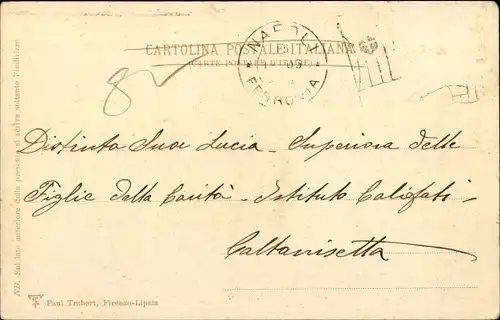 CARTOLINA POSTALE ITALIANA
(CARTE POSTALE D'ITALIE)
NAPOLI
FERROVIA
Distinta Suor Lucia - Superiora delle
Figlie della Carità - Istituto Califati -
Caltanisetta
NB. Sul lato anteriore della presente si scrive soltanto l'indirizzo
Paul Trabert, Firenze-Lipsia